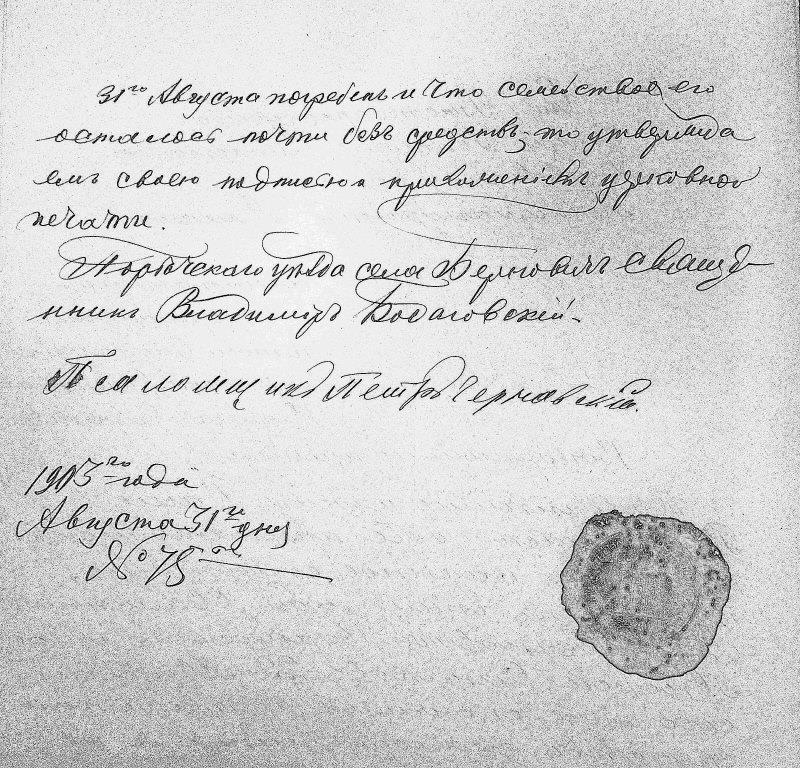 31го Августа погребенъ и что семейство его
осталось почти безъ средствъ, то утвержда
емъ своею подписью и приложеніемъ церковной
печати.
уѣзда села священ
никъ Владиміръ
Псаломщикъ Петръ Чернавскій.
1903го года
Августа 31го дня
№ 75